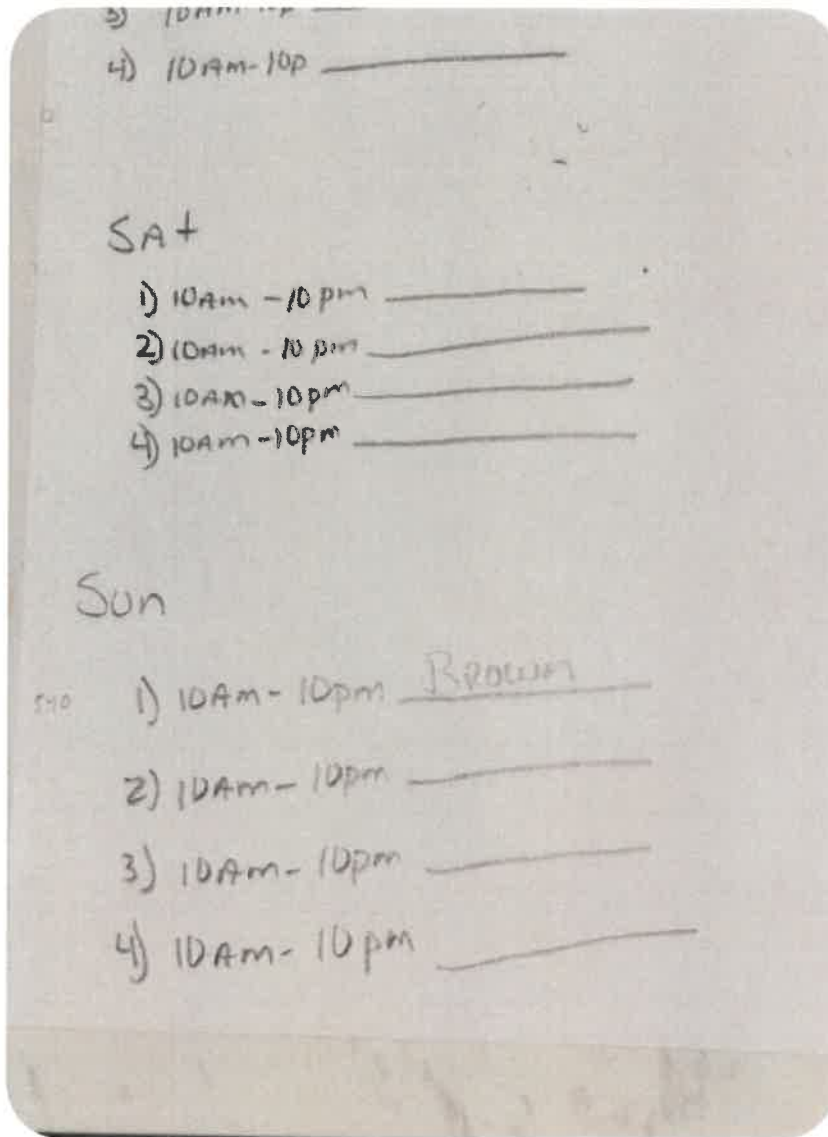 3) 10Am-10p
4) 10Am-10p
SAt
1) 10Am - 10 pm
2) 10Am - 10 pm
3) 10Am - 10pm
4) 10Am - 10pm
Sun
1) 10Am - 10pm Brown
2) 10Am - 10pm
3) 10Am - 10pm
4) 10Am - 10pm